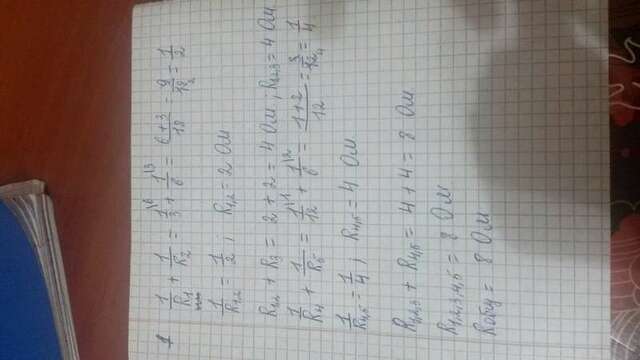 1 1/R1 + 1/R2 = 1\6/3 + 1\3/6 = 6+3/18 = 9/18 2 = 1/2
1/R1,2 = 1/2 ; R1,2 = 2 Ом
R1,2 + R3 = 2 + 2 = 4 Ом ; R1,2,3 = 4 Ом
1/R4 + 1/R5 = 1\1/12 + 1\2/6 = 1+2/12 = 3/12 4 = 1/4
1/R4,5 = 1/4 ; R4,5 = 4 Ом
R1,2,3 + R4,5 = 4 + 4 = 8 Ом
R1,2,3,4,5 = 8 Ом
Rобщ = 8 Ом